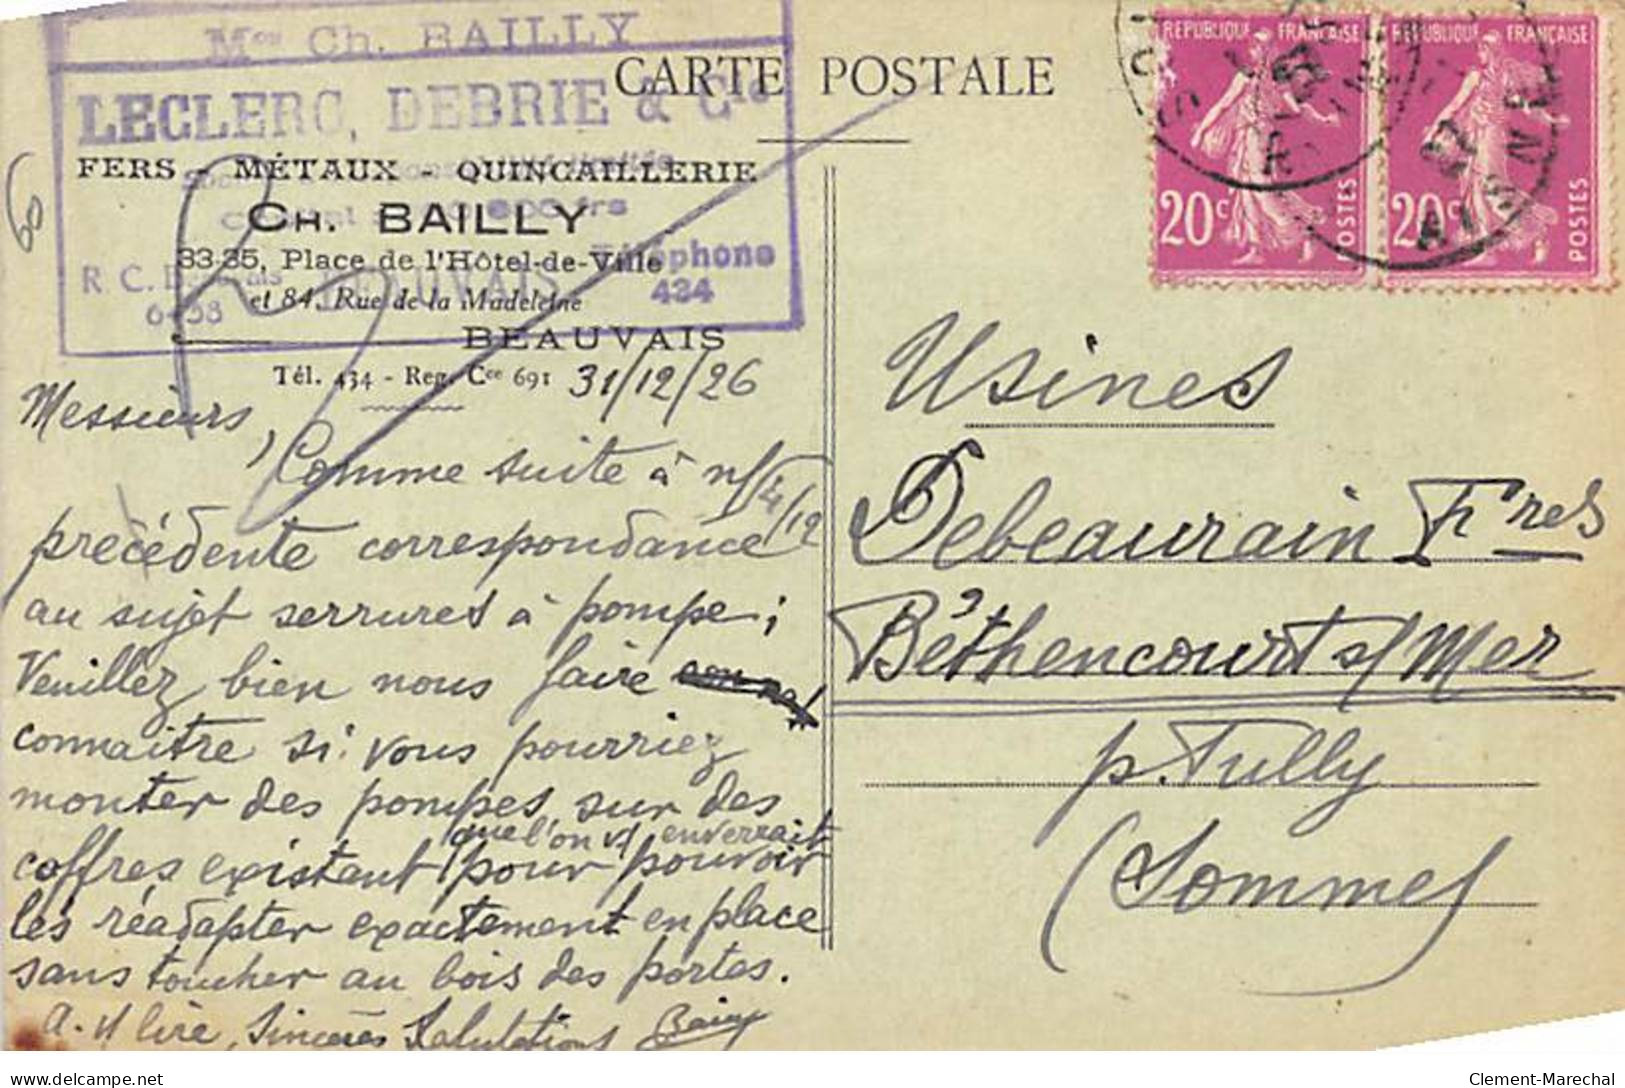 Mon Ch. BAILLY
LECLERC, DEBRIE & Cie
CARTE POSTALE
FERS - MÉTAUX - QUINCAILLERIE
CH. BAILLY
33-35, Place de l'Hôtel-de-Ville
Téléphone
434
R. C. Beauvais
6458
BEAUVAIS
et 84, Rue de la Madeleine
BEAUVAIS
Tél. 434 - Reg. Cce 691
31/12/26
60
Messieurs,
Comme suite à n/
précédente correspondance
au sujet serrures à pompe;
Veuillez bien nous faire
connaitre si vous pourriez
monter des pompes sur des
que l'on v/ enverrait
coffres existent pour pouvoir
les réadapter exactement en place
sans toucher au bois des portes.
A v/ lire, Sincères Salutations
Bailly
REPUBLIQUE FRANÇAISE
20c
POSTES
REPUBLIQUE FRANÇAISE
20c
POSTES
Usines
Debeaurain Fres
Béthencourt s/ Mer
p. Tully
(Somme)
delcampe.net
Clement-Marechal